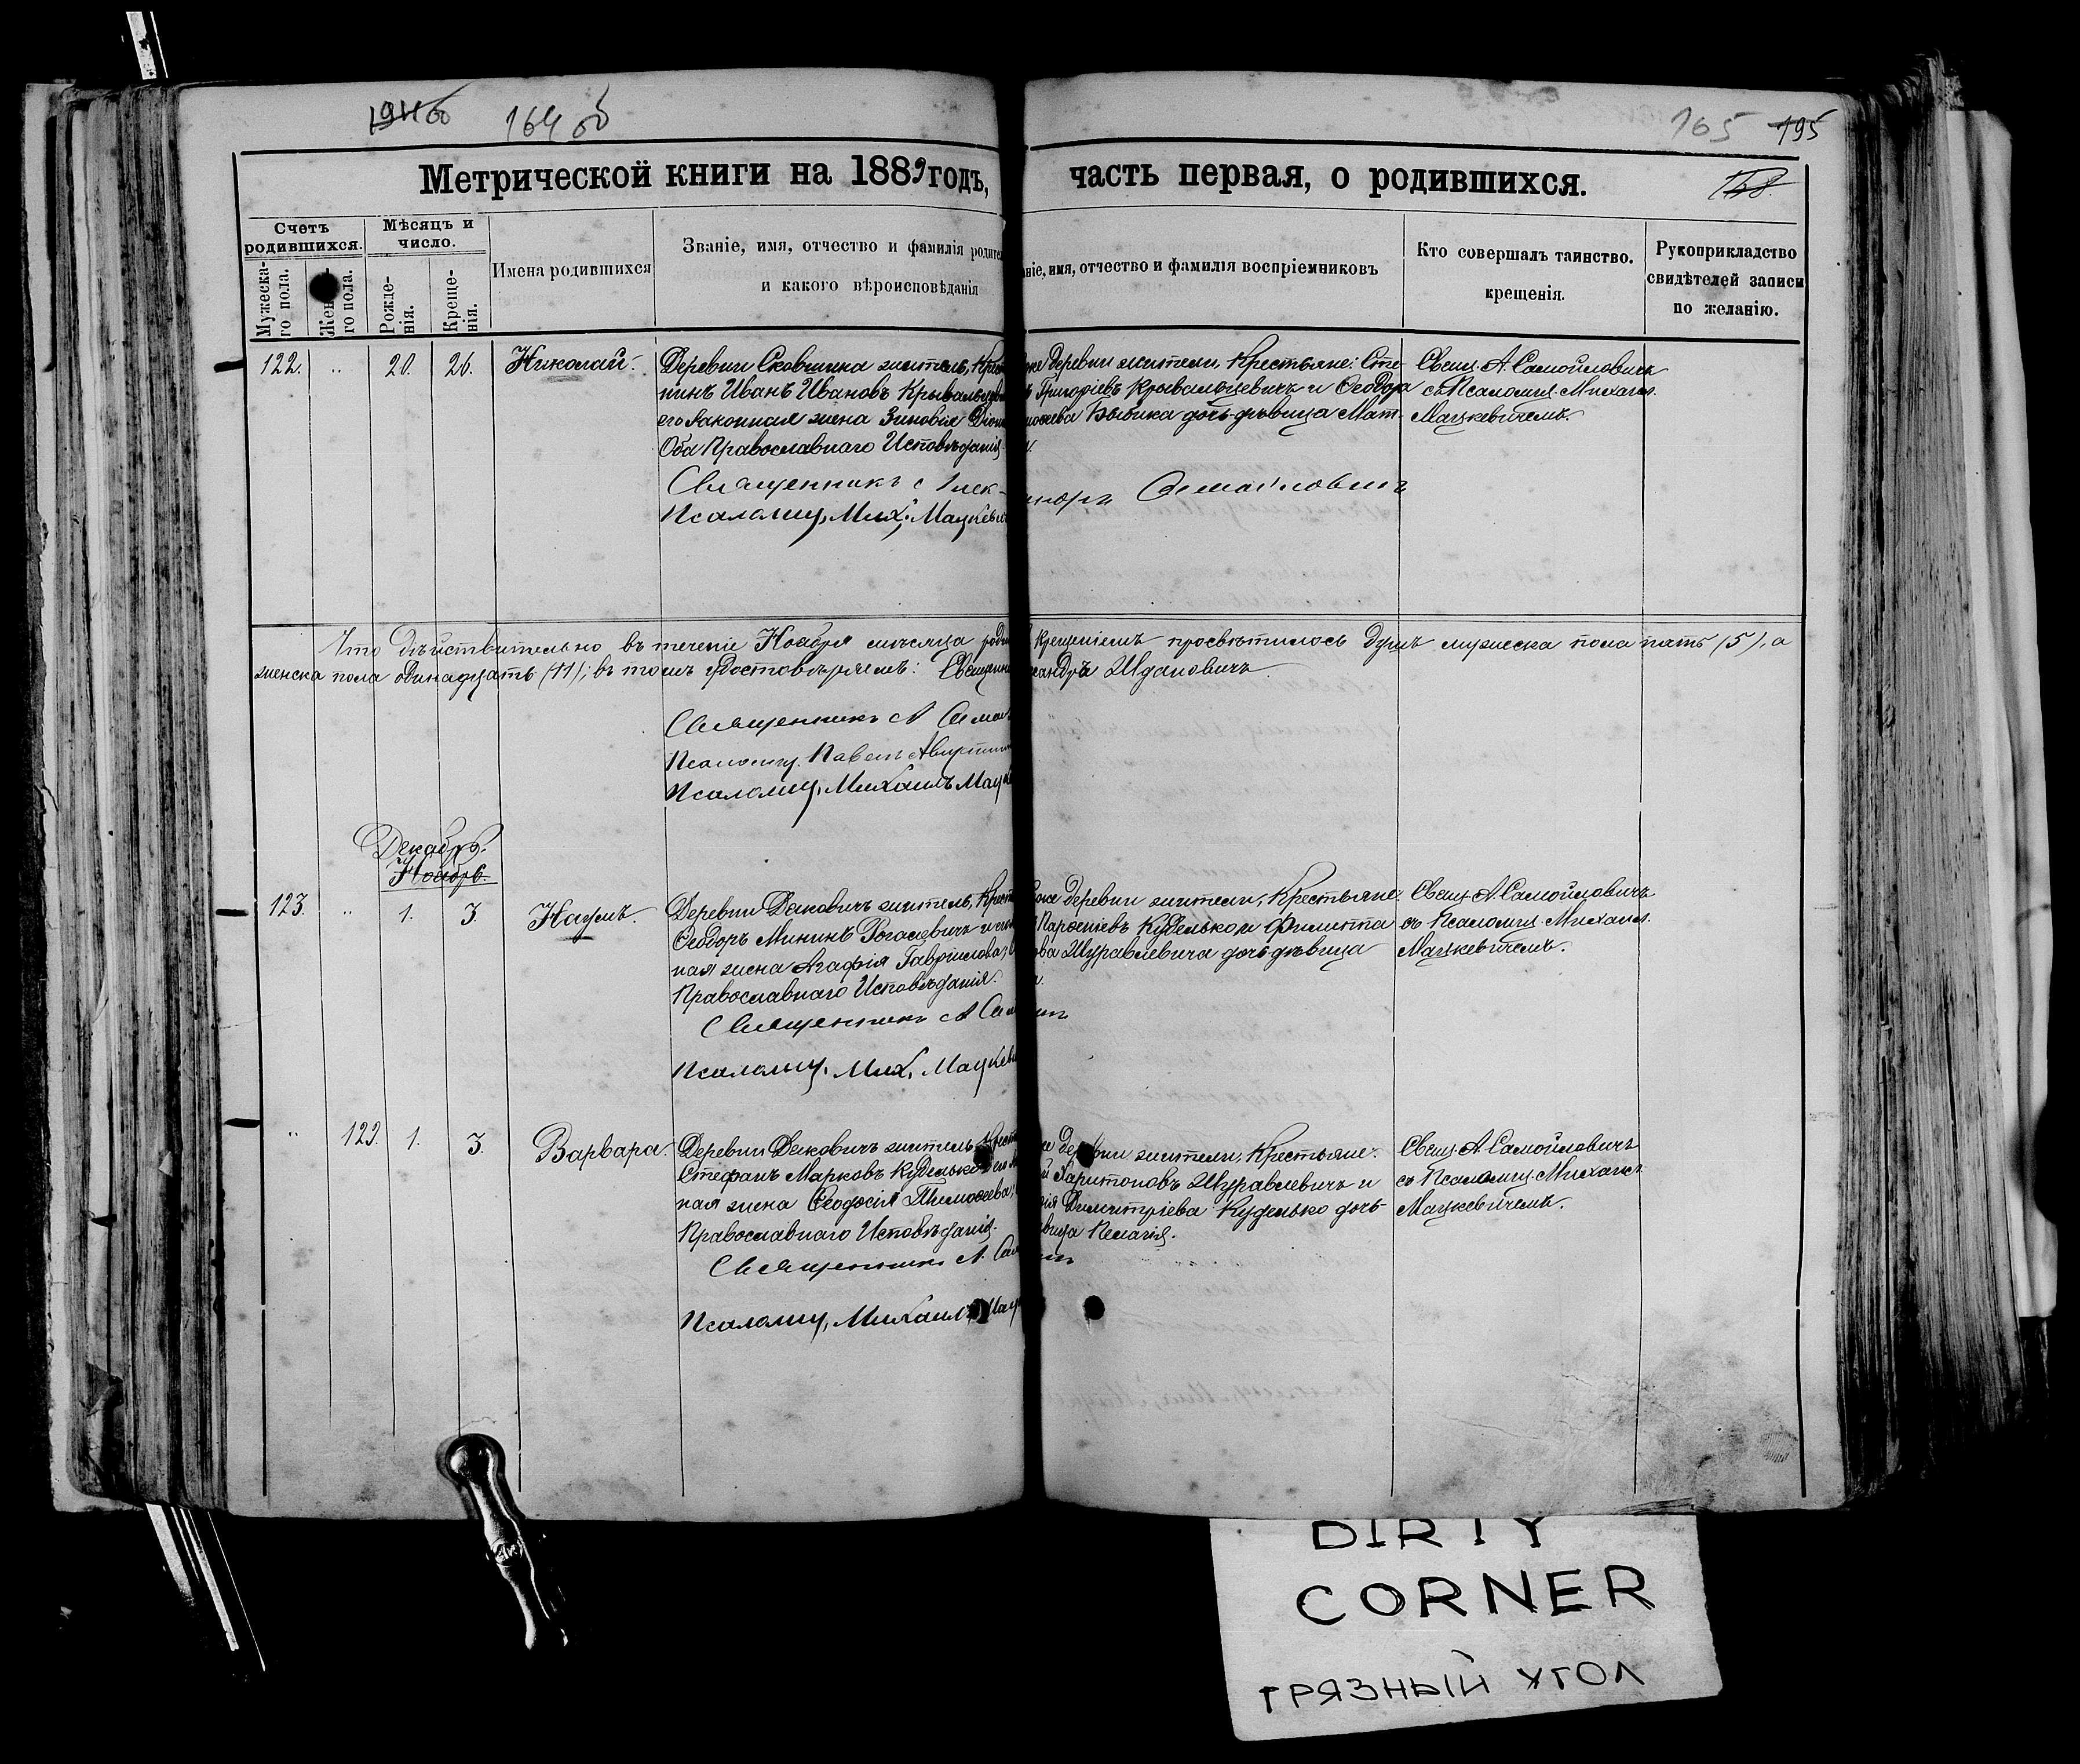 194об 164 об
165 195
Метрической книги на 1889 годъ, часть первая, о родившихся.
158.
Счетъ родившихся.
Мѣсяцъ и число.
Мужеска-го пола.
Жен го пола.
Рожде-нія.
Креще-нія.
Имена родившихся
Званіе, имя, отчество и фамилія родите
и какого вѣроисповѣданія
ніе, имя, отчество и фамилія воспріемниковъ
Кто совершалъ таинство.
крещенія.
Рукоприкладство
свидѣтелей записи
по желанію.
122. " 20. 26. Николай.
Деревни житель, Крест
нинъ Иванъ Ивановъ
его законная жена Зиновія
Оба Православнаго Исповѣданія.
Священникъ Алек
Псаломщ. Мих. Мацкеви
же деревни жители, Крестьяне: Сте-
ъ Григоріевъ и Ѳеодора
дочь дѣвица Мат-
Самойловичъ
Свящ. А. Самойловичъ
съ Псаломщ. Михаил.
Мацкевичемъ.
Что дѣйствительно въ теченіе Ноября мѣсяца роди крещеніемъ просвѣтилось душъ мужеска пола пять (5), а
женска пола одинадцать (11); въ томъ удостовѣряемъ: Священн ксандръ Ждановичъ.
Священникъ А Само
Псаломщ. Павелъ
Псаломщ. Михаилъ Мацк
Декабрь.
Ноябрь.
123. " 1. 3 Наумъ.
Деревни Дяковичъ житель, Крест
Ѳеодоръ Мининъ Рогалевичъ и
ная жена Агафія Гавріилова,
Православнаго Исповѣданія.
Священникъ А Сам
Псаломщ. Мих. Мацкеви
же деревни жители, Крестьяне:
Куделько и Филиппа
ова Журавлевича дочь дѣвица
Свящ. А. Самойловичъ
съ Псаломщ. Михаил.
Мацкевичемъ.
" 129. 1. 3. Варвара.
Деревни Дяковичъ житель, Крест
Стефанъ Марковъ Куделько и
ная жена Ѳеодосія Тимоѳеева,
Православнаго Исповѣданія.
Священникъ А. Сам
Псаломщ. Михаилъ Мац
же деревни жители, Крестьяне:
й Харитоновъ Журавлевичъ и
рія Димитріева Куделько дочь
вица Пелагія.
Свящ. А. Самойловичъ
съ Псаломщ. Михаил.
Мацкевичемъ.
DIRTY
CORNER
ГРЯЗНЫЙ УГОЛ